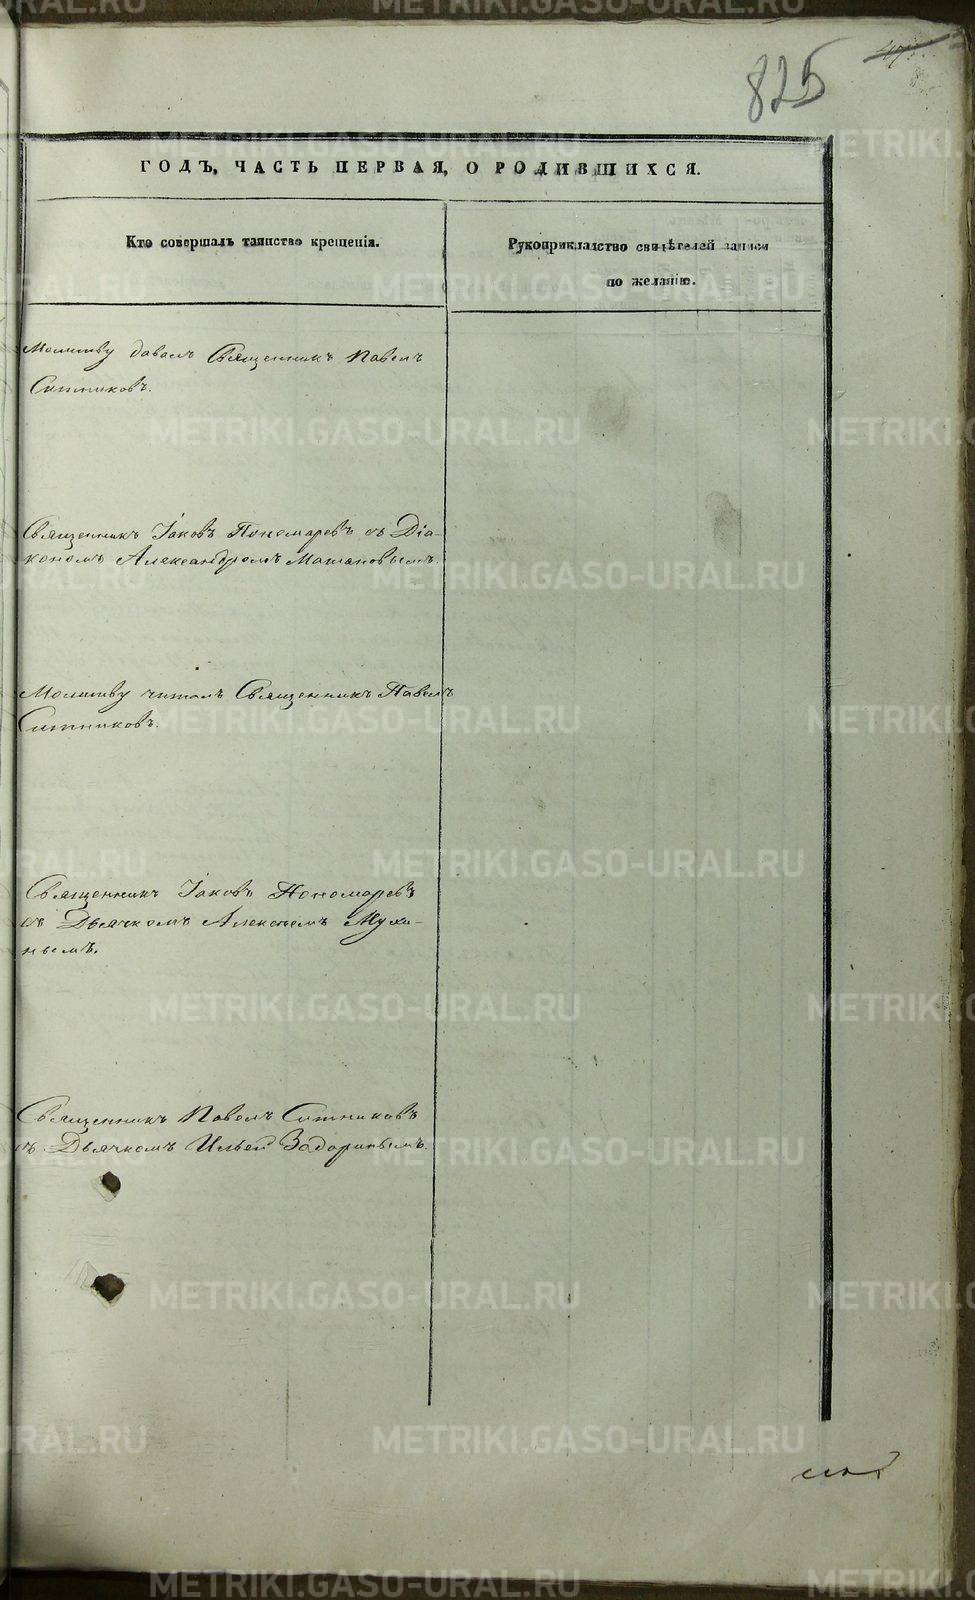 825
ГОДЪ, ЧАСТЬ ПЕРВАЯ, О РОДИВШИХСЯ.
Кто совершалъ таинство крещенія.
Рукоприкладство свидѣтелей записи
по желанію.
Молитву давалъ Священникъ Павелъ
Ситниковъ.
Священникъ Іаковъ Пономаревъ съ Діа-
кономъ Александромъ
Молитву читалъ Священникъ Павелъ
Ситниковъ.
Священникъ Іаковъ Пономаревъ
съ Дьячкомъ Алексѣемъ Мухи-
нымъ.
Священникъ Павелъ Ситниковъ
съ Дьячкомъ Ильей Задоринымъ.
METRIKI.GASO-URAL.RU